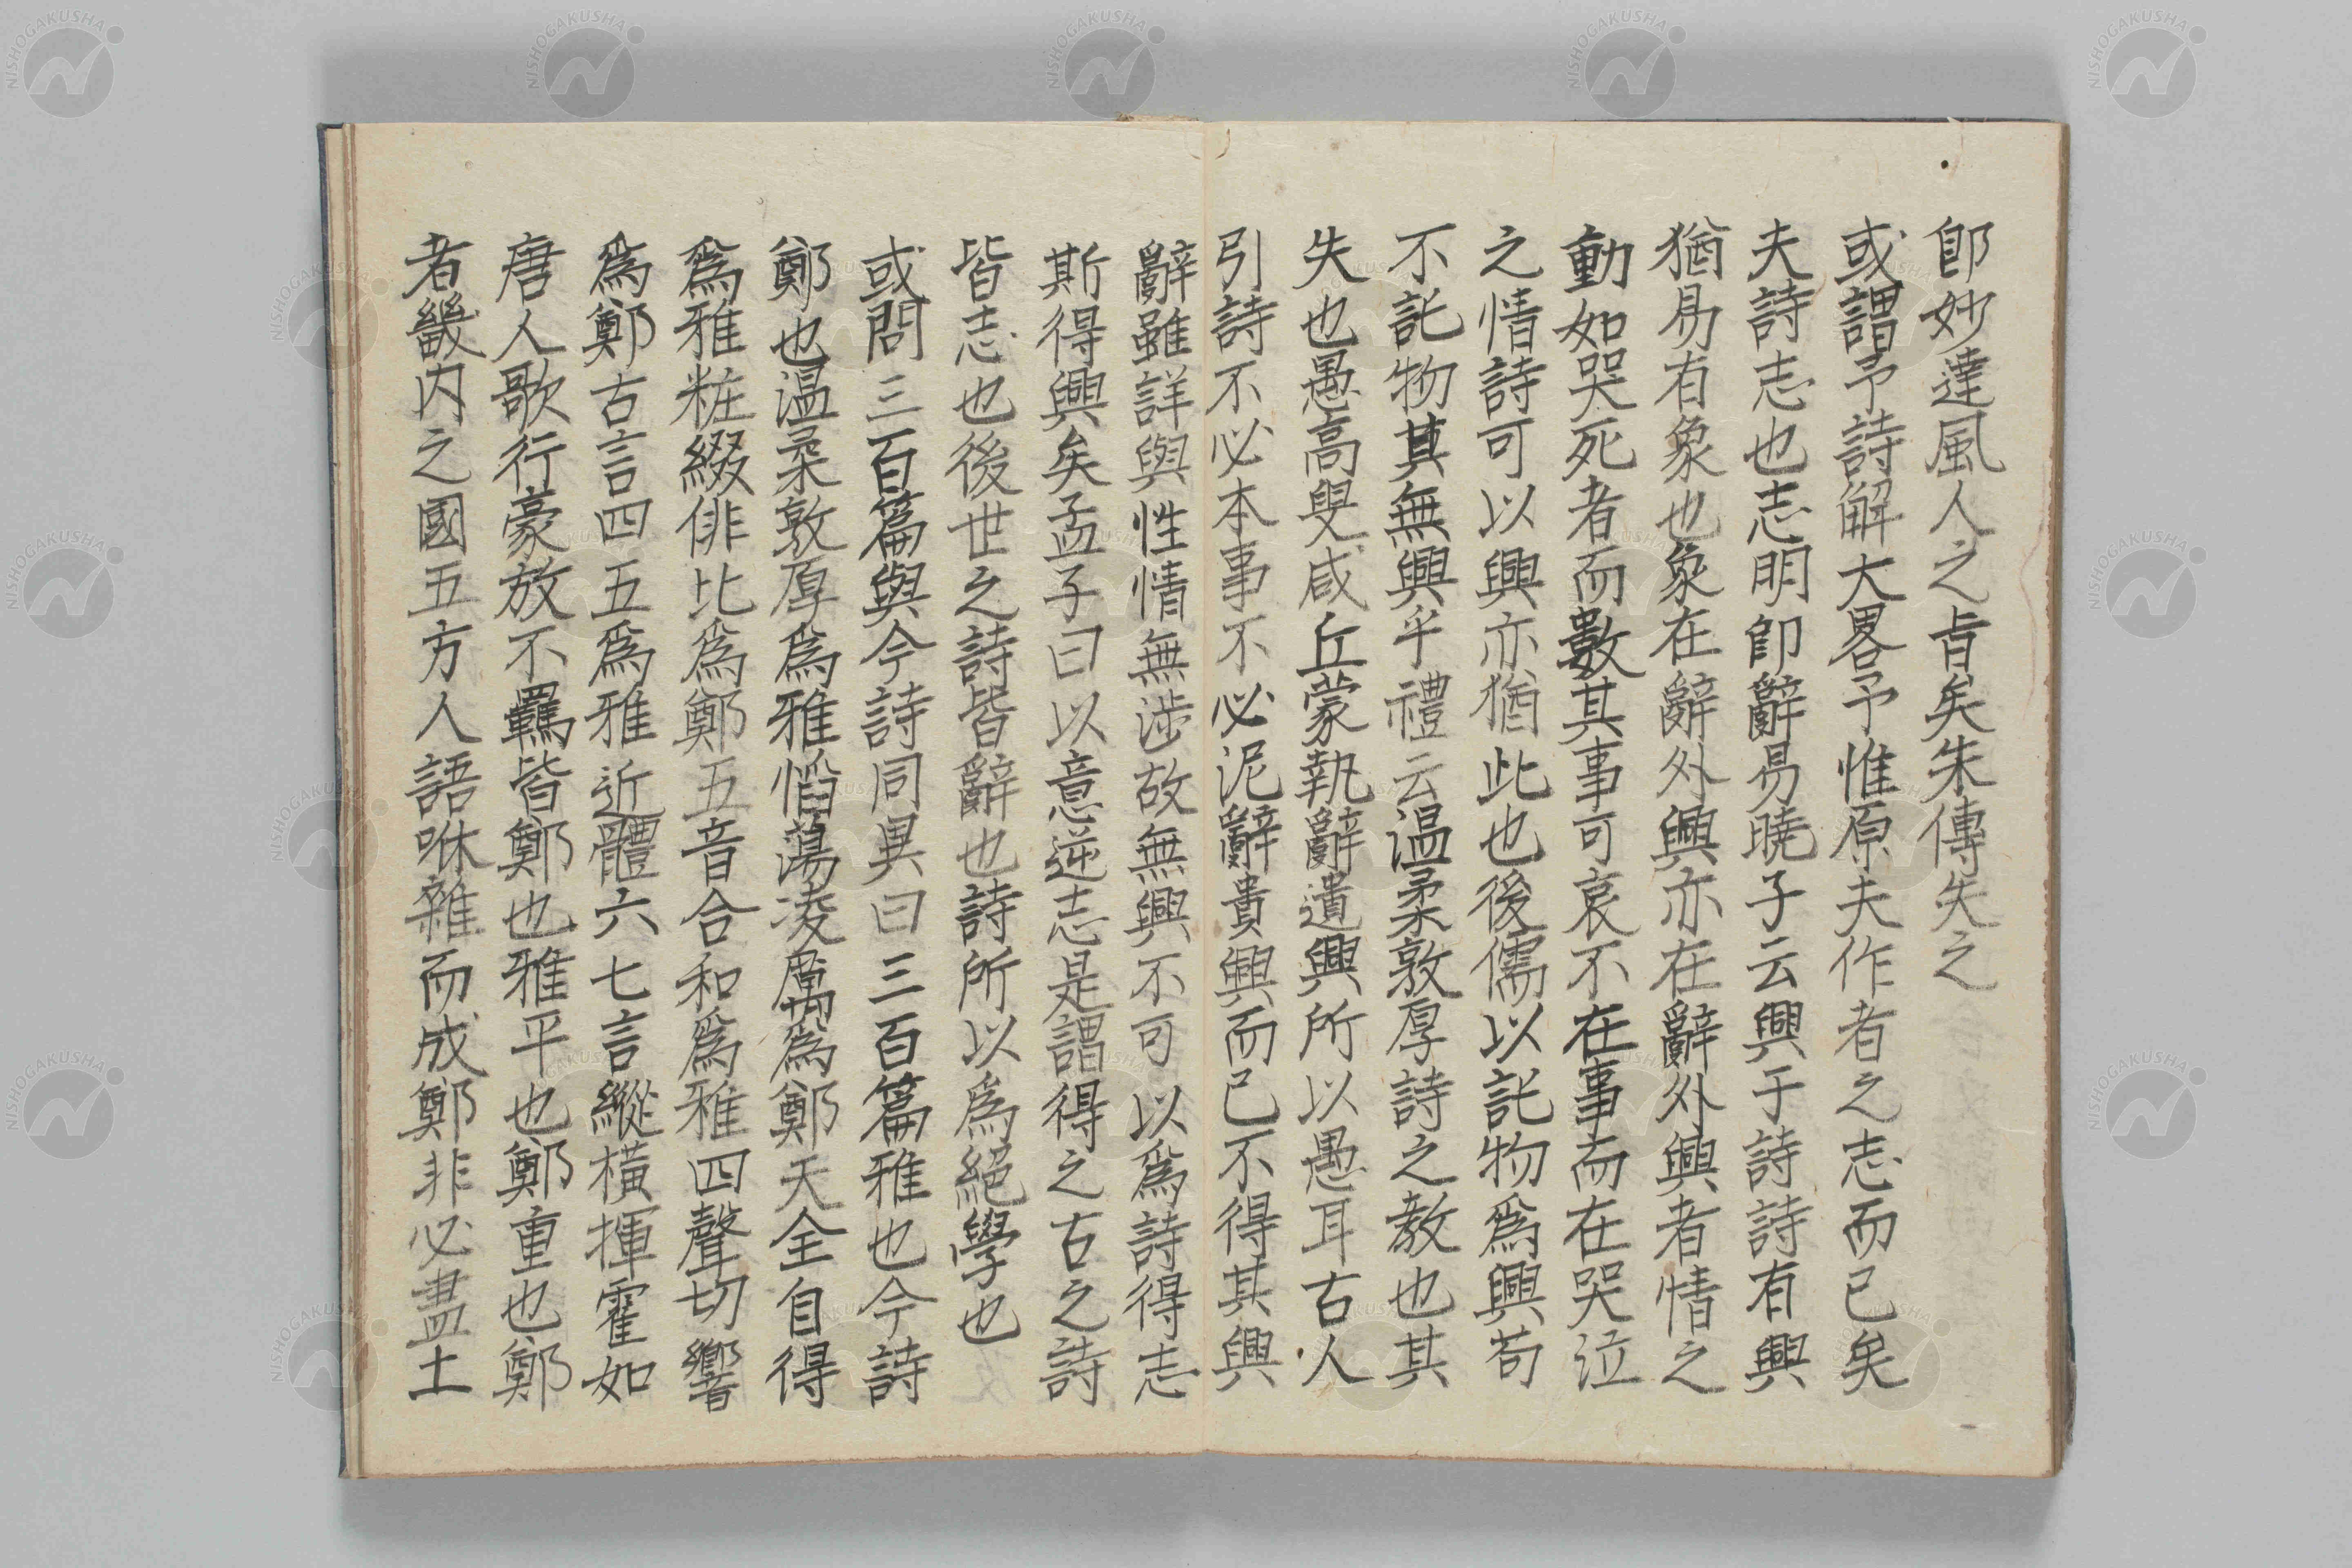 卽妙達風人之旨矣朱傳失之
或謂予詩解大畧予惟原夫作者之志而已矣
夫詩志也志明卽辭易曉子云興于詩詩有興
猶易有象也象在辭外興亦在辭外興者情之
動如哭死者而數其事可哀不在事而在哭泣
之情詩可以興亦猶此也後儒以託物爲興苟
不託物其無興乎禮云溫柔敦厚詩之敎也其
失也愚高叟咸丘蒙執辭遺興所以愚耳古人
引詩不必本事不必泥辭貴興而已不得其興
辭雖詳與性情無涉故無興不可以爲詩得志
斯得興矣孟子曰以意逆志是謂得之古之詩
皆志也後世之詩皆辭也詩所以爲絕學也
或問三百篇與今詩同異曰三百篇雅也今詩
鄭也溫柔敦厚爲雅慆蕩凌厲爲鄭天全自得
爲雅粧綴俳比爲鄭五音合和爲雅四聲切響
爲鄭古言四五爲雅近體六七言縱橫揮霍如
唐人歌行豪放不羈皆鄭也雅平也鄭重也鄭
者畿內之國五方人語咻雜而成鄭非必盡土
NISHOGAKUSHA